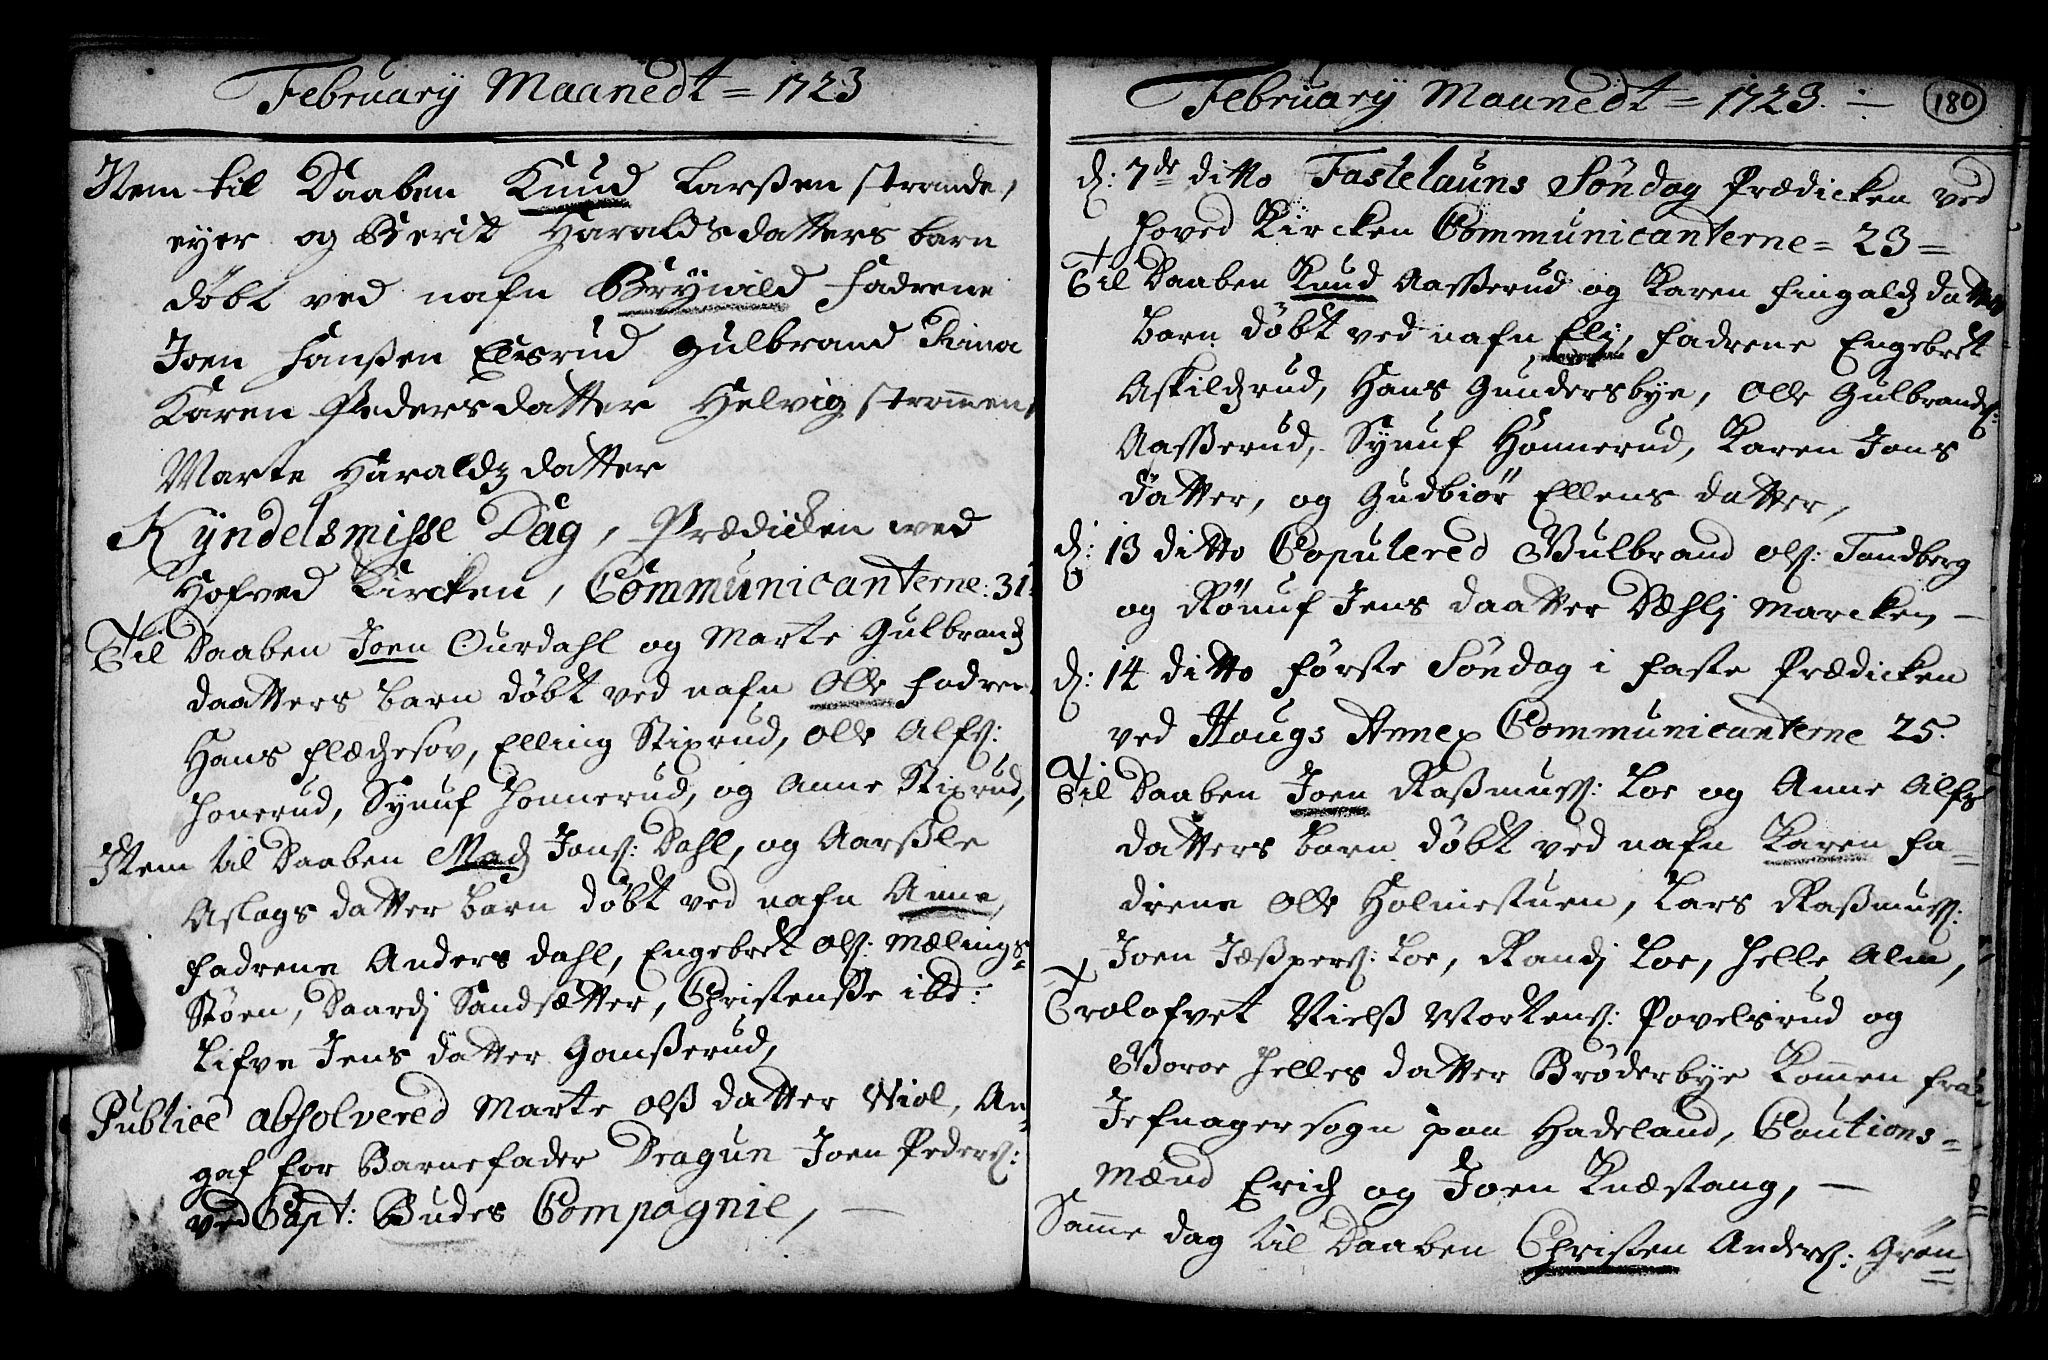 February Maanedt = 1723
Item til Daaben Knud Larßen Strande,
eyer og Berit Haraldsdatters barn
døbt ved nafn Brynild Fadrene
Joen Hanßen Elsrud Gulbrand
Karen Pedersdatter Helvig Strømmen,
Marte Haraldz datter
Kyndelsmisse Dag, Prædicken ved
Hofved Kircken, Communicanterne: 31:
Til Daaben Joen Ourdahl og Marte Gulbrandz
daatters barn døbt ved nafn Olle Fadrene
Hans Flædesov, Elling Stixrud, Olle Alfs:
Honerud, Synuf Honnerud, og Anne Stixrud,
Item til Daaben Madz Jons: Dahl, og Aarßle
Aslags datter barn døbt ved nafn Anne,
Fadrene Anders Dahl, Engebret Ols: Mælings=
Støen, Baardj Sandsætter, Christenße ibd:
Lifve Jens datter Gonßerud,
Publicè absolvered Marte Olß datter Viol, An=
gaf for Barnefader Dragun Joen Peders:
ved Capt: Budes Compagnie, —
February Maanedt = 1723. —
180
d: 7de ditto Fastelauns Søndag Prædicken ved
Hoved Kircken Communicanterne = 23 =
Til Daaben Knud Aasserud og Karen Fingalz datters
barn døbt ved nafn Elj, Fadrene Engebret
Askildzrud, Hans Gundersbye, Olle Gulbrands:
Aasserud, Synuf Honnerud, Karen Jons
datter, og Gudbiør Ellens datter,
d: 13 ditto Copulered Gulbrand Ols: Tandberg
og Rønuf Jens daatter Dæhlj Marcken —
d: 14 ditto første Søndag i Faste Prædicken
ved Hougs Annex Communicanterne 25.
Til Daaben Joen Raßmuss: Loe og Anne Alfs
datters barn døbt ved nafn Karen Fa=
drene Olle Holmestuen, Lars Raßmuss:
Joen Jæßpers: Loe, Randj Loe, Helle Alm,
Trolofvet Nielß Mortens: Povelsrud og
Goroe Helles datter Brøderbye kommen fra
Jefnager sogn paa Hadeland, Cautions=
mænd Erich og Joen Knæstang, —
Samme dag til Daaben Christen Anders: Grøn=